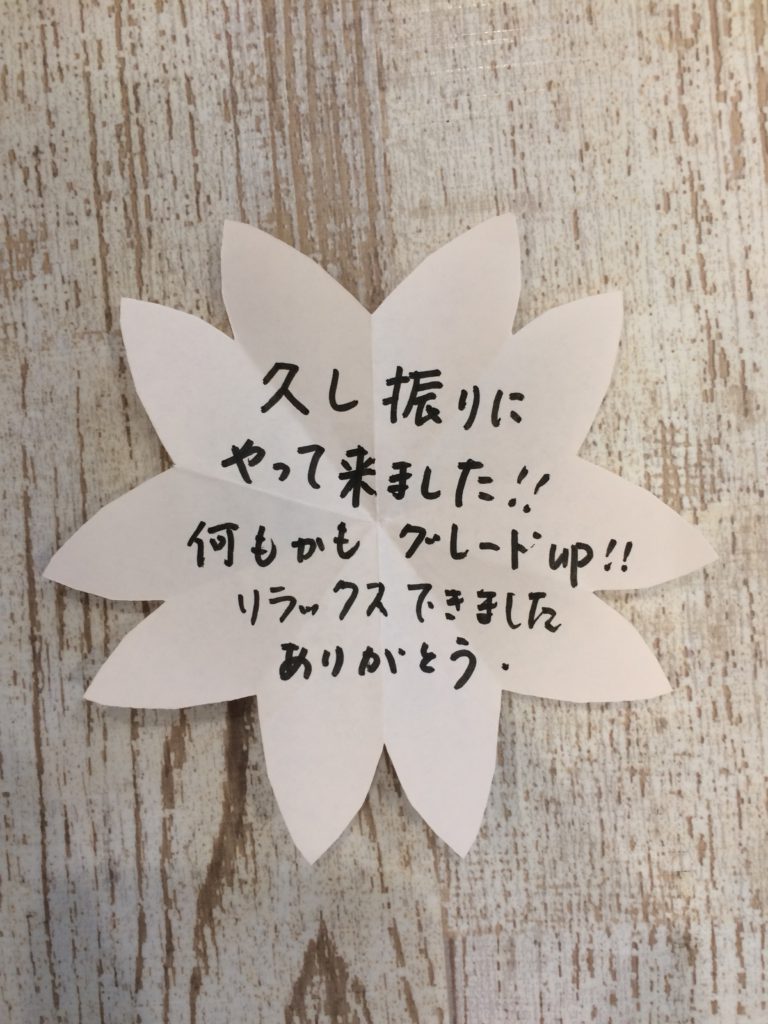 久し振りに
やって来ました!!
何もかも グレードup!!
リラックスできました
ありがとう.